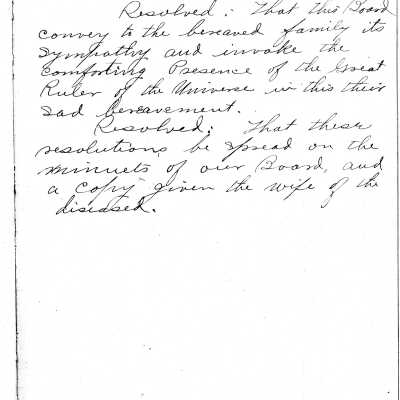 Resolved: That this Board
convey to the bereaved family its
sympathy and invoke the
comforting Presence of the Great
Ruler of the Universe in this their
sad bereavement.
Resolved: That these
resolutions be spread on the
minnets of our Board, and
a copy given the wife of the
diseased.